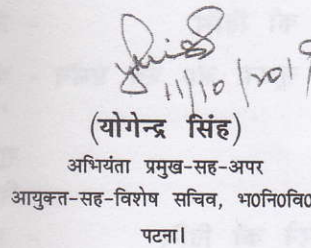 11/10/201
(योगेन्द्र सिंह)
अभियंता प्रमुख-सह-अपर
आयुक्त-सह-विशेष सचिव, भा०नि०वि०
पटना।